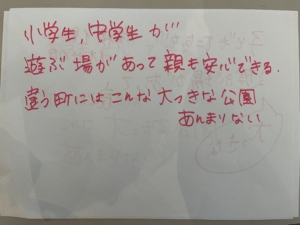 小学生,中学生が
遊ぶ場があって親も安心できる.
違う町にはこんな大っきな公園
あんまりない